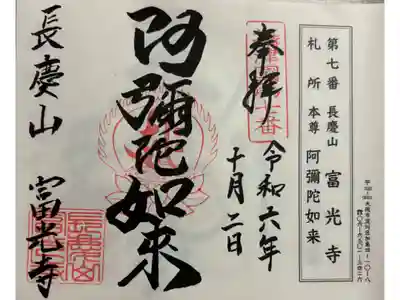 第七番 長慶山 富光寺
札所本尊 阿彌陀如来
奉拝
令和六年
十月二日
阿彌陀如来
長慶山 富光寺